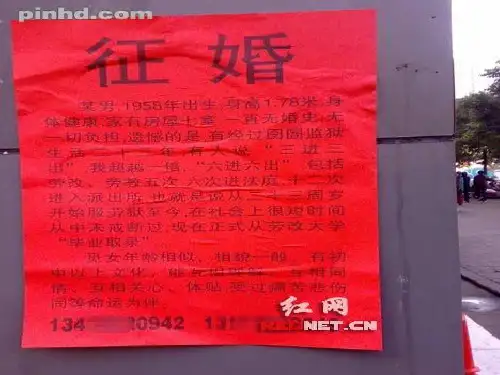 pinhd.com
征婚
某男,1958年出生,身高1.78米,身
体健康,家有房屋七室,一直无婚史,无
一切负担,遗憾的是,有经过囹圄监狱
生活二十二年,有人说,“三进三
出”,我超越一倍,“六进六出”,包括
劳改、劳教五次,六次进法庭,十二次
进入派出所,也就是说从三十三周岁
开始服劳狱至今,在社会上很短时间
从中未戒断过,现在正式从劳改大学
“毕业取泉”
年龄相似,相貌一般,有初
中以上文化,能
情,互相关心、体贴,受过痛苦悲伤
同等命运为伴。
134 20942 13
红网
REDNET.CN